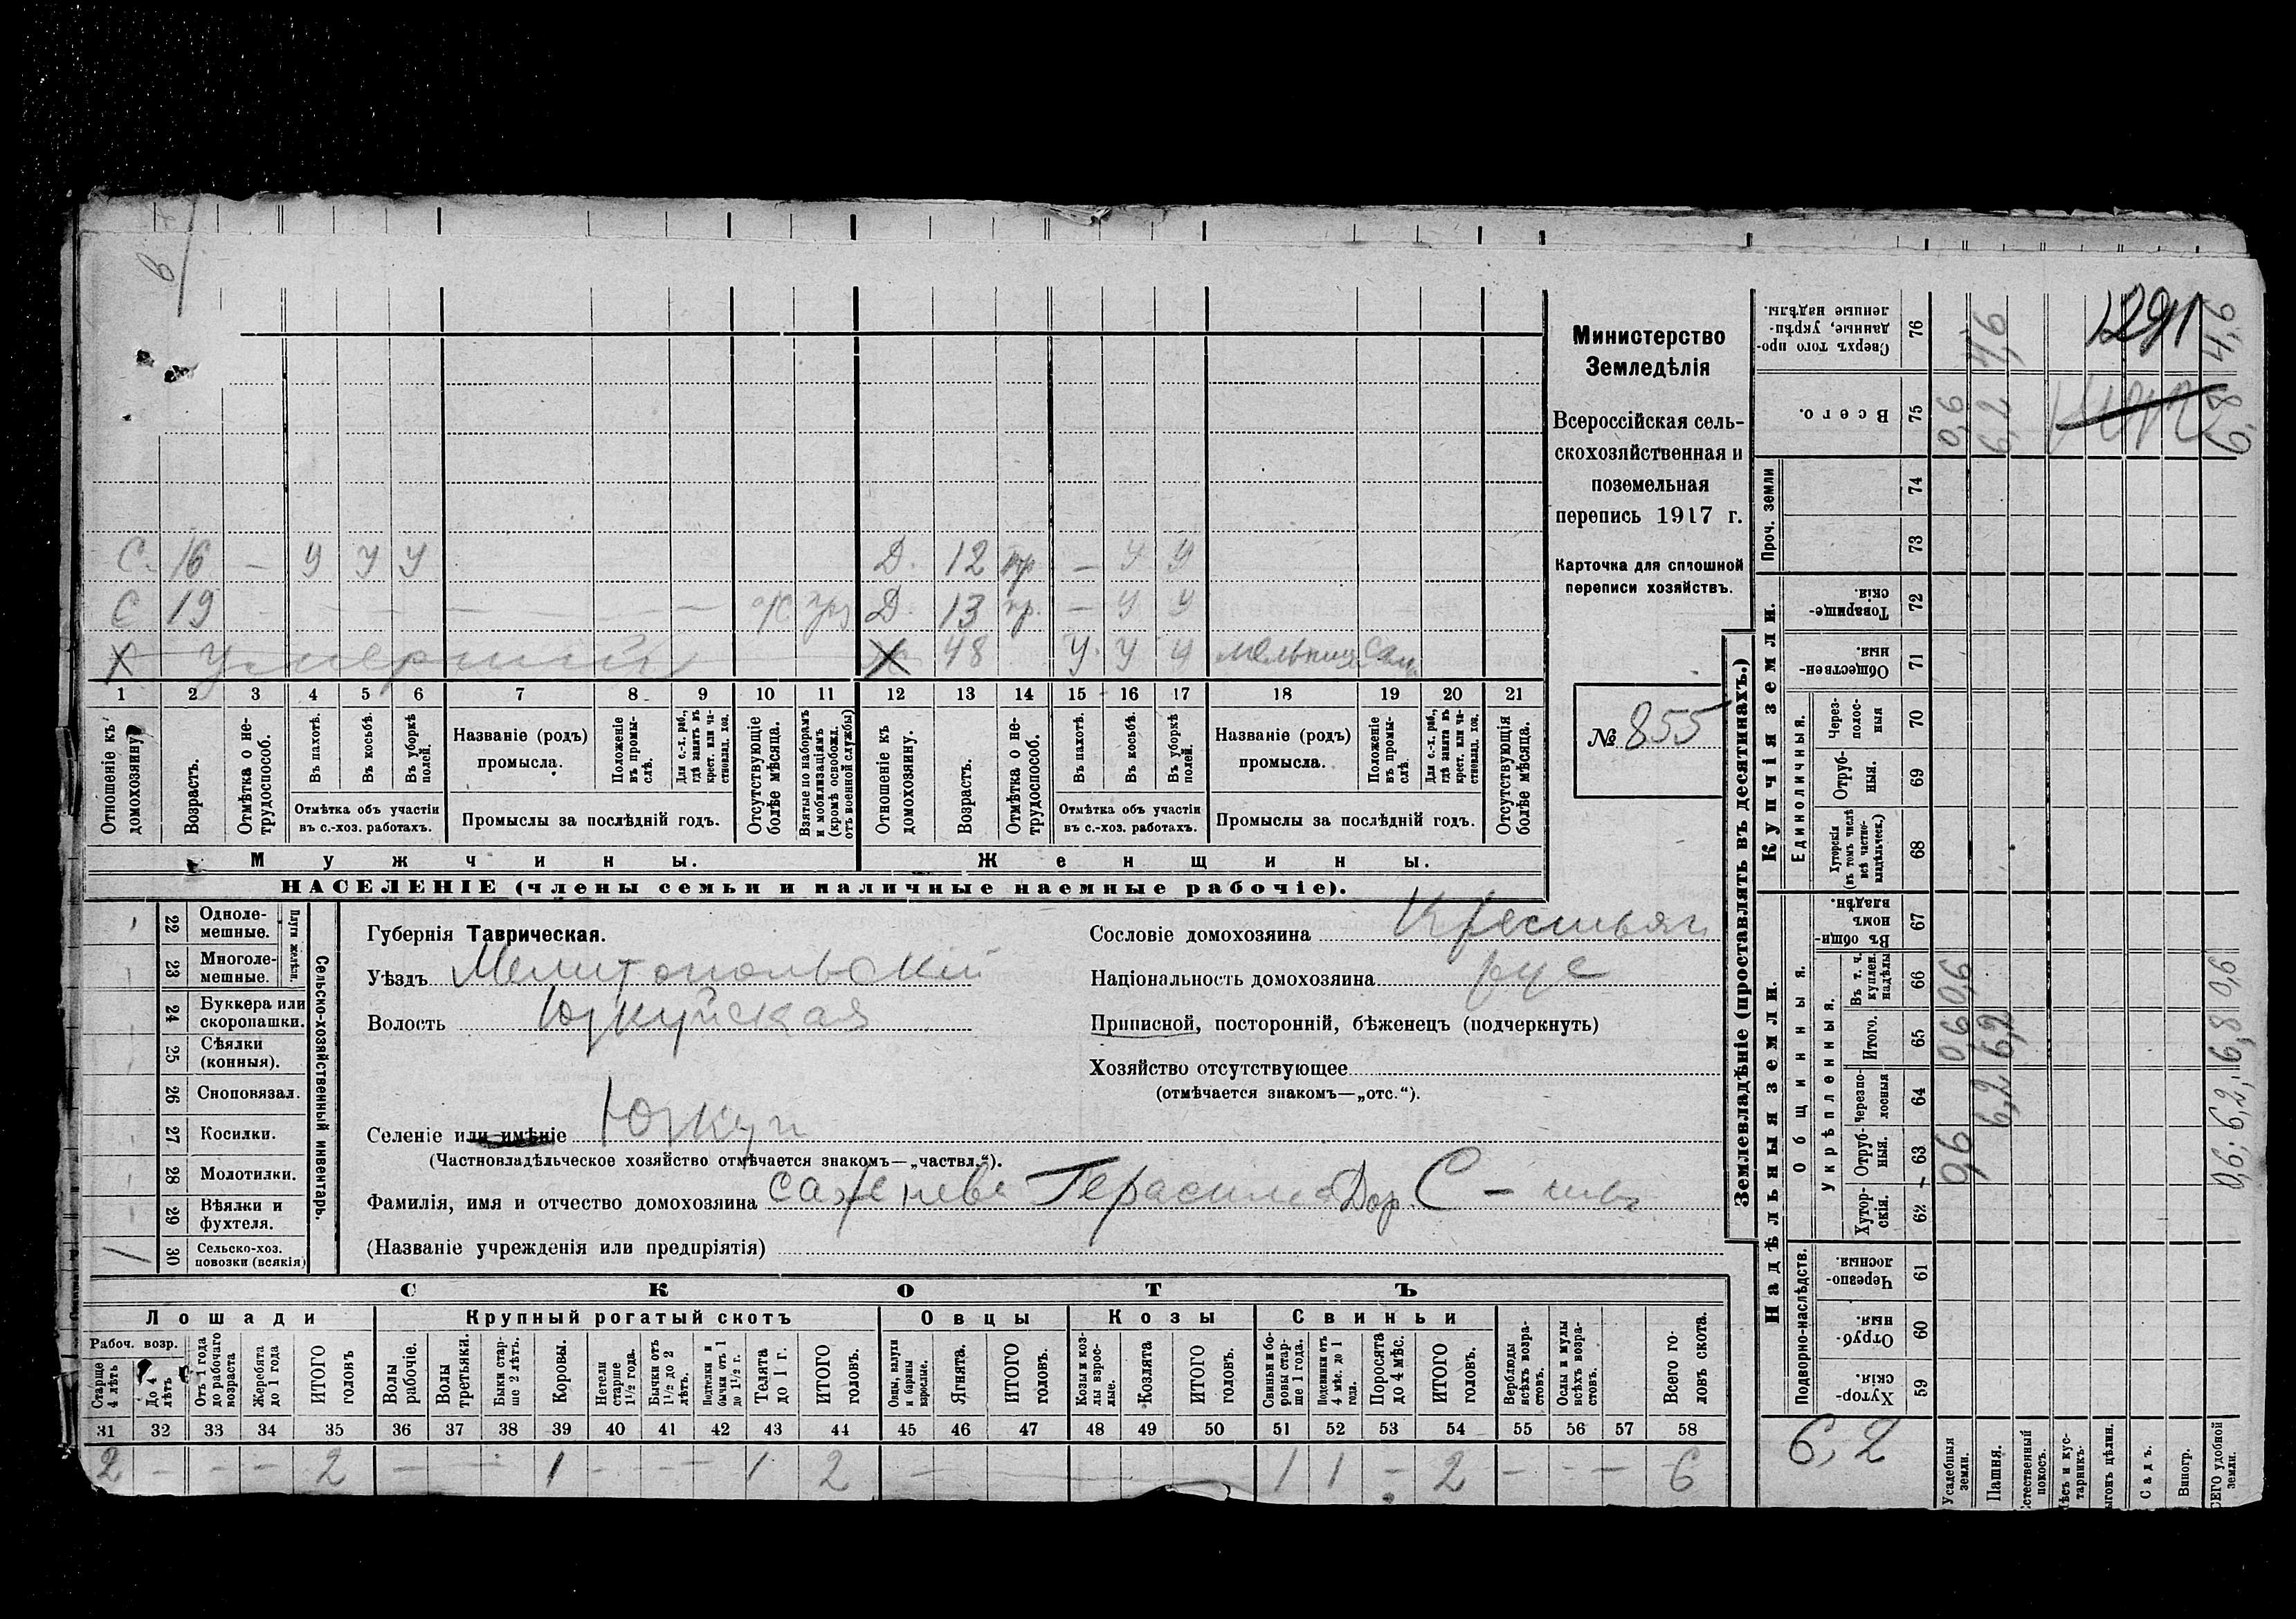 С. 16 — У У У Д. 12 пр — У У
С 19 — — — — — — Д. 13 пр. — У У
Х умерший Х 48 У. У У
1 2 3 4 5 6 7 8 9 10 11 12 13 14 15 16 17 18 19 20 21
Отношеніе къ домохозяину.
Возрастъ.
Отмѣтка о не-трудоспособ.
Въ пахотѣ.
Въ косьбѣ.
Въ уборкѣ полей.
Отмѣтка объ участіи
въ с.-хоз. работахъ.
Названіе (родъ)
промысла.
Положеніе въ промы-слѣ.
Для с.-х. раб., гдѣ занятъ въ крест. или ча-стновлад. хоз.
Промыслы за послѣдній годъ.
Отсутствующіе болѣе мѣсяца.
Взятые по наборамъ и мобилизаціямъ (кромѣ освобожд. отъ военной службы)
Отношеніе къ домохозяину.
Возрастъ.
Отмѣтка о не-трудоспособ.
Въ пахотѣ.
Въ косьбѣ.
Въ уборкѣ полей.
Отмѣтка объ участіи
въ с.-хоз. работахъ.
Названіе (родъ)
промысла.
Положеніе въ промы-слѣ.
Для с.-х. раб., гдѣ занята въ крест. или ча-стновлад. хоз.
Промыслы за послѣдній годъ.
Отсутствующія болѣе мѣсяца.
Мужчины. Женщины.
НАСЕЛЕНІЕ (члены семьи и наличные наемные рабочіе).
Министерство
Земледѣлія
Всероссійская сель-
скохозяйственная и
поземельная
перепись 1917 г.
Карточка для сплошной
переписи хозяйствъ.
№ 855
Сельско-хозяйственный инвентарь.
Плуги желѣзн.
22 Одноле-мешные.
23 Многоле-мешные.
24 Буккера или скоропашки.
25 Сѣялки (конныя).
26 Сноповязал.
27 Косилки.
28 Молотилки.
29 Вѣялки и фухтеля.
1 30 Сельско-хоз. повозки (всякія)
Губернія Таврическая.
Уѣздъ Мелитопольскій
Волость Юзкуйская
Селеніе или имѣніе Юзкуи
(Частновладѣльческое хозяйство отмѣчается знакомъ—„частвл.“).
Сословіе домохозяина Крестьян
Національность домохозяина рус
Приписной, посторонній, бѣженецъ (подчеркнуть)
Хозяйство отсутствующее
(отмѣчается знакомъ—„отс.“).
Фамилія, имя и отчество домохозяина Герасима Дор. С-
(Названіе учрежденія или предпріятія)
СКОТЪ
Лошади Крупный рогатый скотъ Овцы Козы Свиньи
Рабоч. возр.
Старше 4 лѣтъ
До 4 лѣтъ
Отъ 1 года до рабочаго возраста
Жеребята до 1 года
ИТОГО головъ
Волы рабочіе.
Волы третьяки.
Быки стар-ше 2 лѣтъ.
Коровы.
Нетели старше 1½ года.
Бычки отъ 1½ до 2 лѣтъ.
Подтелки и бычки отъ 1 до 1½ г.
Телята до 1 г.
ИТОГО головъ.
Овцы, валухи и бараны взрослые.
Ягнята.
ИТОГО головъ.
Козы и коз-лы взрос-лые.
Козлята
ИТОГО головъ.
Свиньи и бо-ровы стар-ше 1 года.
Подсвинки отъ 4 мѣс. до 1 года.
Поросята до 4 мѣс.
ИТОГО головъ.
Верблюды всѣхъ возра-стовъ.
Ослы и мулы всѣхъ возра-стовъ.
Всего го-ловъ скота.
31 32 33 34 35 36 37 38 39 40 41 42 43 44 45 46 47 48 49 50 51 52 53 54 55 56 57 58
2 — — — 2 — — — 1 — — — 1 2 — 1 1 — 2 — — — 6
Землевладѣніе (проставлять въ десятинахъ.)
Надѣльныя земли.
Купчія земли.
Проч. земли
Подворно-наслѣдств.
Общинныя.
Укрѣпленныя.
Единоличныя.
Сверхъ того про-данные, укрѣп-ленные надѣлы. 76 4,6 1291 4,6
Всего. 75 0,6 6,2 6,8
74
73
Товарище-скія. 72
Обществен-ныя. 71
Через-полос-ныя 70
Отруб-ныя. 69
Хуторскія (въ томъ числѣ всѣ частно-владѣльческ.) 68
Въ общи-номъ владѣн. 67
Въ т. ч. куплен. надѣлы 66 0,6 0,6
Итого. 65 0,6 6,2 6,8
Черезпо-лосныя 64 6,2 6,2
Отруб-ныя. 63 0,6 0,6
Хутор-скія. 62
Черезпо-лосныя 61
Отруб-ныя. 60
Хутор-скія. 59
6,2
Усадебныя земли.
Пашня.
Естественный покосъ.
Лѣсъ и кус-тарникъ.
Садъ.
Виногр.
ВСЕГО удобной земли.